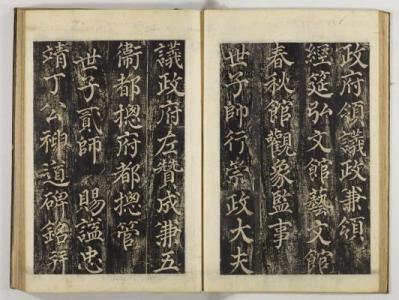 政府領議政兼領
經筵弘文館藝文館
春秋館觀象監事
世子師行崇政大夫
議政府左贊成兼五
衛都摠府都摠管
世子貳師 賜謚忠
靖丁公神道碑銘幷